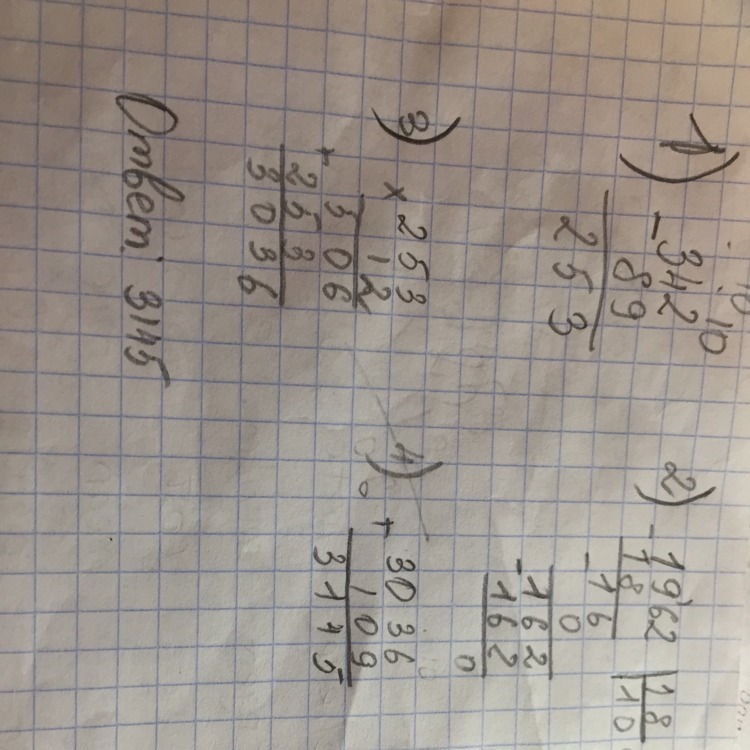 1)
10 10
- 342
89
253
2)
- 1962 | 18
18 | 10
- 16
0
- 162
162
0
3)
× 253
12
506
+ 253
3036
4)
+ 3036
109
3145
Ответ: 3145